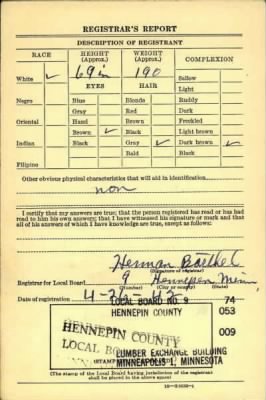 REGISTRAR'S REPORT
DESCRIPTION OF REGISTRANT
RACE HEIGHT (Approx.) WEIGHT (Approx.) COMPLEXION
White ✓ 69 in 190 Sallow
EYES HAIR Light
Negro Blue Blonde Ruddy
Gray Red Dark
Oriental Hazel Brown Freckled
Brown ✓ Black Light brown
Indian Gray ✓ Dark brown ✓
Black Bald Black
Filipino
Other obvious physical characteristics that will aid in identification
non
I certify that my answers are true; that the person registered has read or has had
read to him his own answers; that I have witnessed his signature or mark and that
all of his answers of which I have knowledge are true, except as follows:
Herman
(Signature of registrar)
Registrar for Local Board 9 Hennepin Minn
(Number) (City or county) (State)
Date of registration 4-26-42
LOCAL BOARD NO. 9 74
HENNEPIN COUNTY 053
009
LUMBER EXCHANGE BUILDING
MINNEAPOLIS 1, MINNESOTA
HENNEPIN COUNTY
LOCAL
(The stamp of the Local Board having jurisdiction of the registrant
shall be placed in the above space)